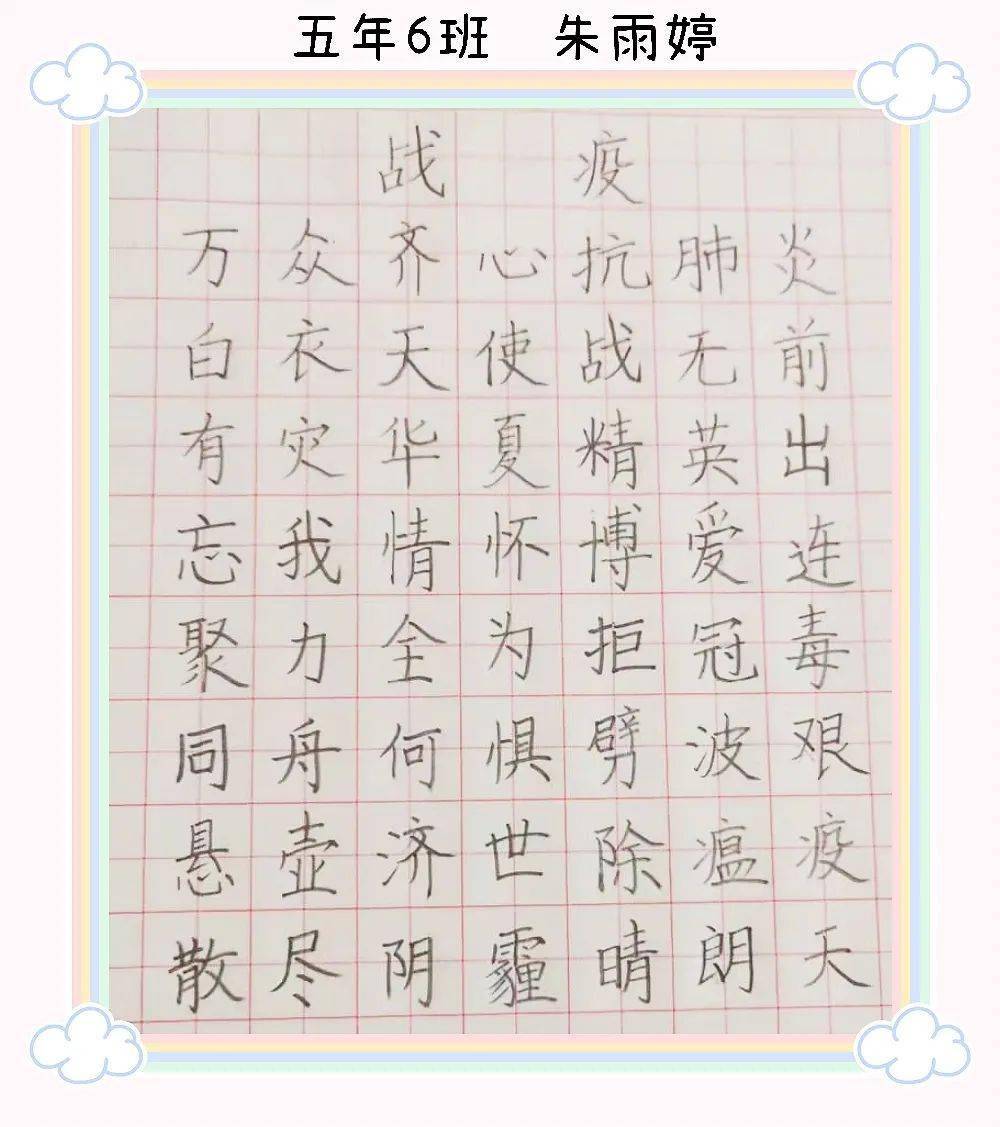 五年6班 朱雨婷
战 疫
万众齐心抗肺炎
白衣天使战无前
有灾华夏精英出
忘我情怀博爱连
聚力全为拒冠毒
同舟何惧劈波艰
悬壶济世除瘟疫
散尽阴霾晴朗天